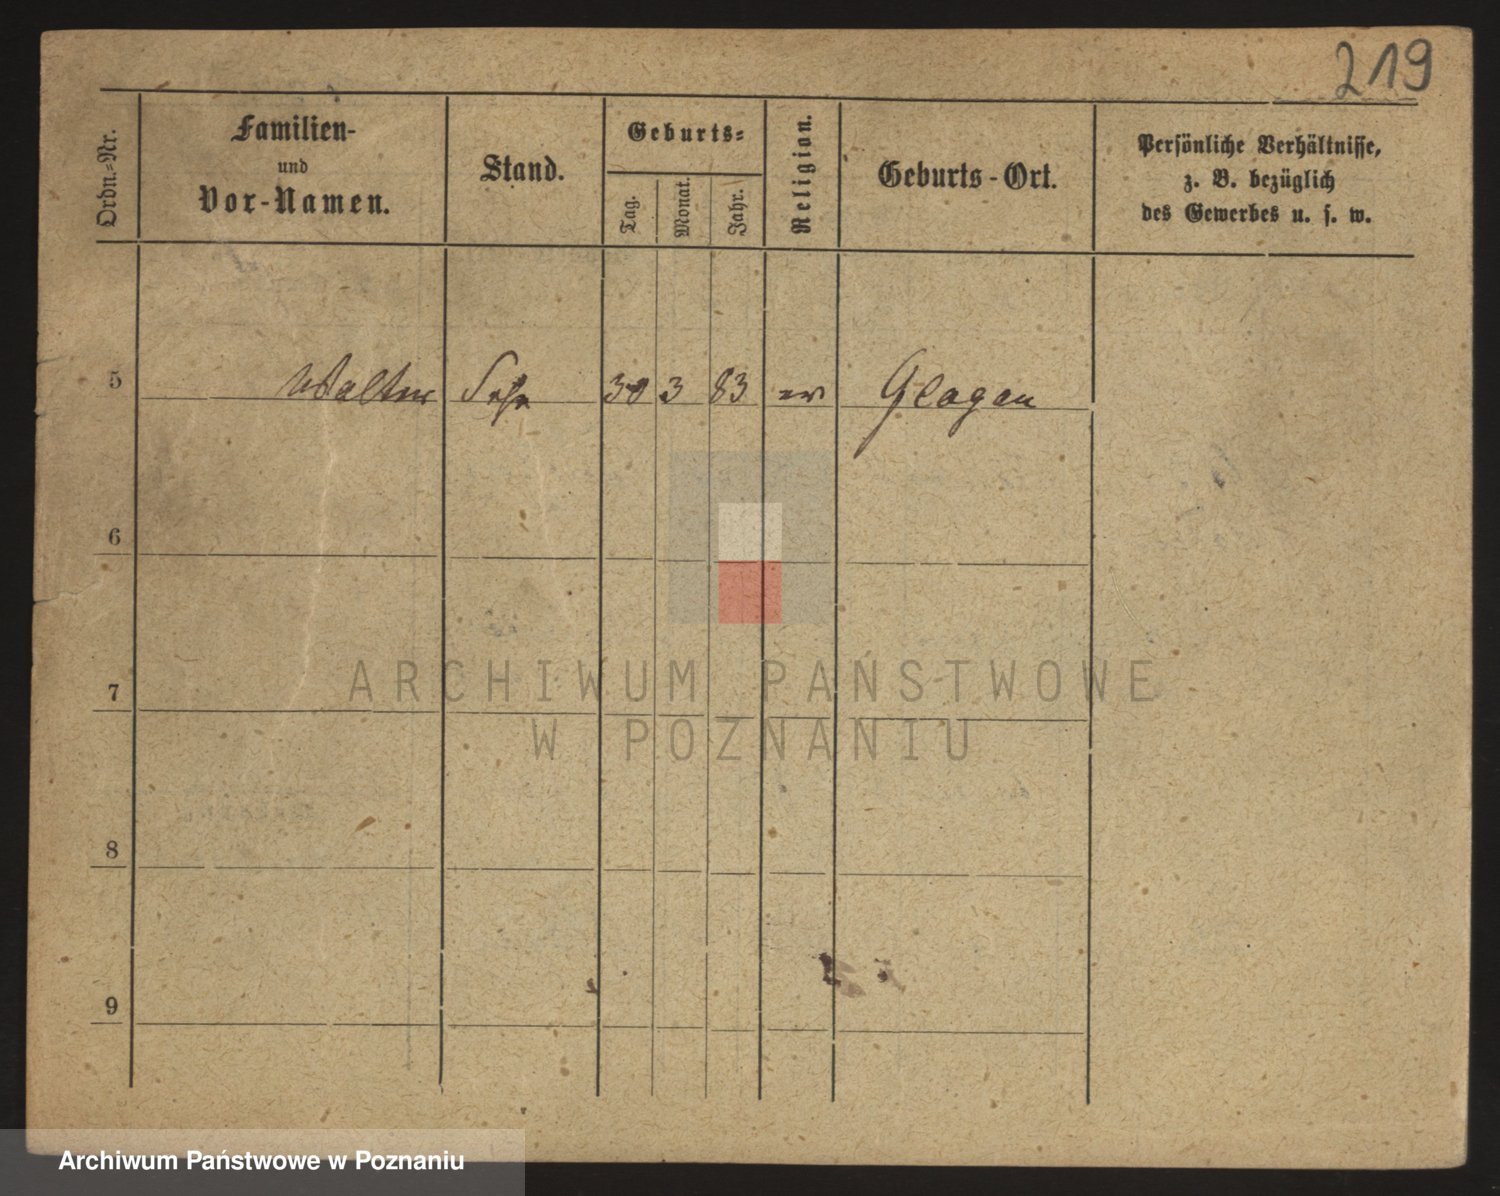 219
Ordn.-Nr.
Familien-
und
Vor-Namen.
Stand.
Geburts-
Tag.
Monat.
Jahr.
Religion.
Geburts-Ort.
Persönliche Verhältnisse,
z. B. bezüglich
des Gewerbes u. s. w.
5 Walter 30 3 83 ev Glogau
6
7
8
9
ARCHIWUM PAŃSTWOWE
W POZNANIU
Archiwum Państwowe w Poznaniu